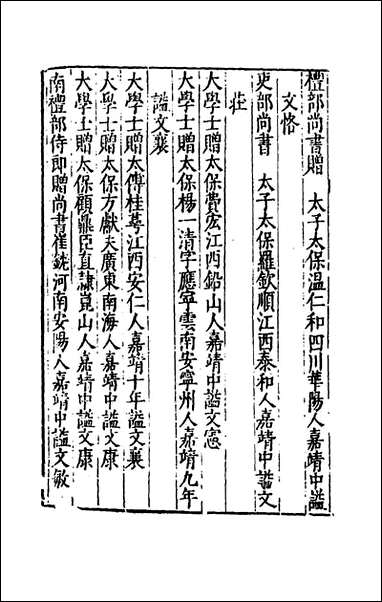 禮部尚書贈　太子太保溫仁和四川華陽人嘉靖中諡
文恪
吏部尚書　太子太保羅欽順江西泰和人嘉靖中諡文
莊
大學士贈太保費宏江西鉛山人嘉靖中諡文憲
大學士贈太保楊一清字應寧雲南安寧州人嘉靖九年
諡文襄
大學士贈太傅桂萼江西安仁人嘉靖十年諡文襄
大學士贈太保方獻夫廣東南海人嘉靖中諡文康
大學士贈太保顧鼎臣直隷崑山人嘉靖中諡文康
南禮部侍郎贈尚書崔銑河南安陽人嘉靖中諡文敏